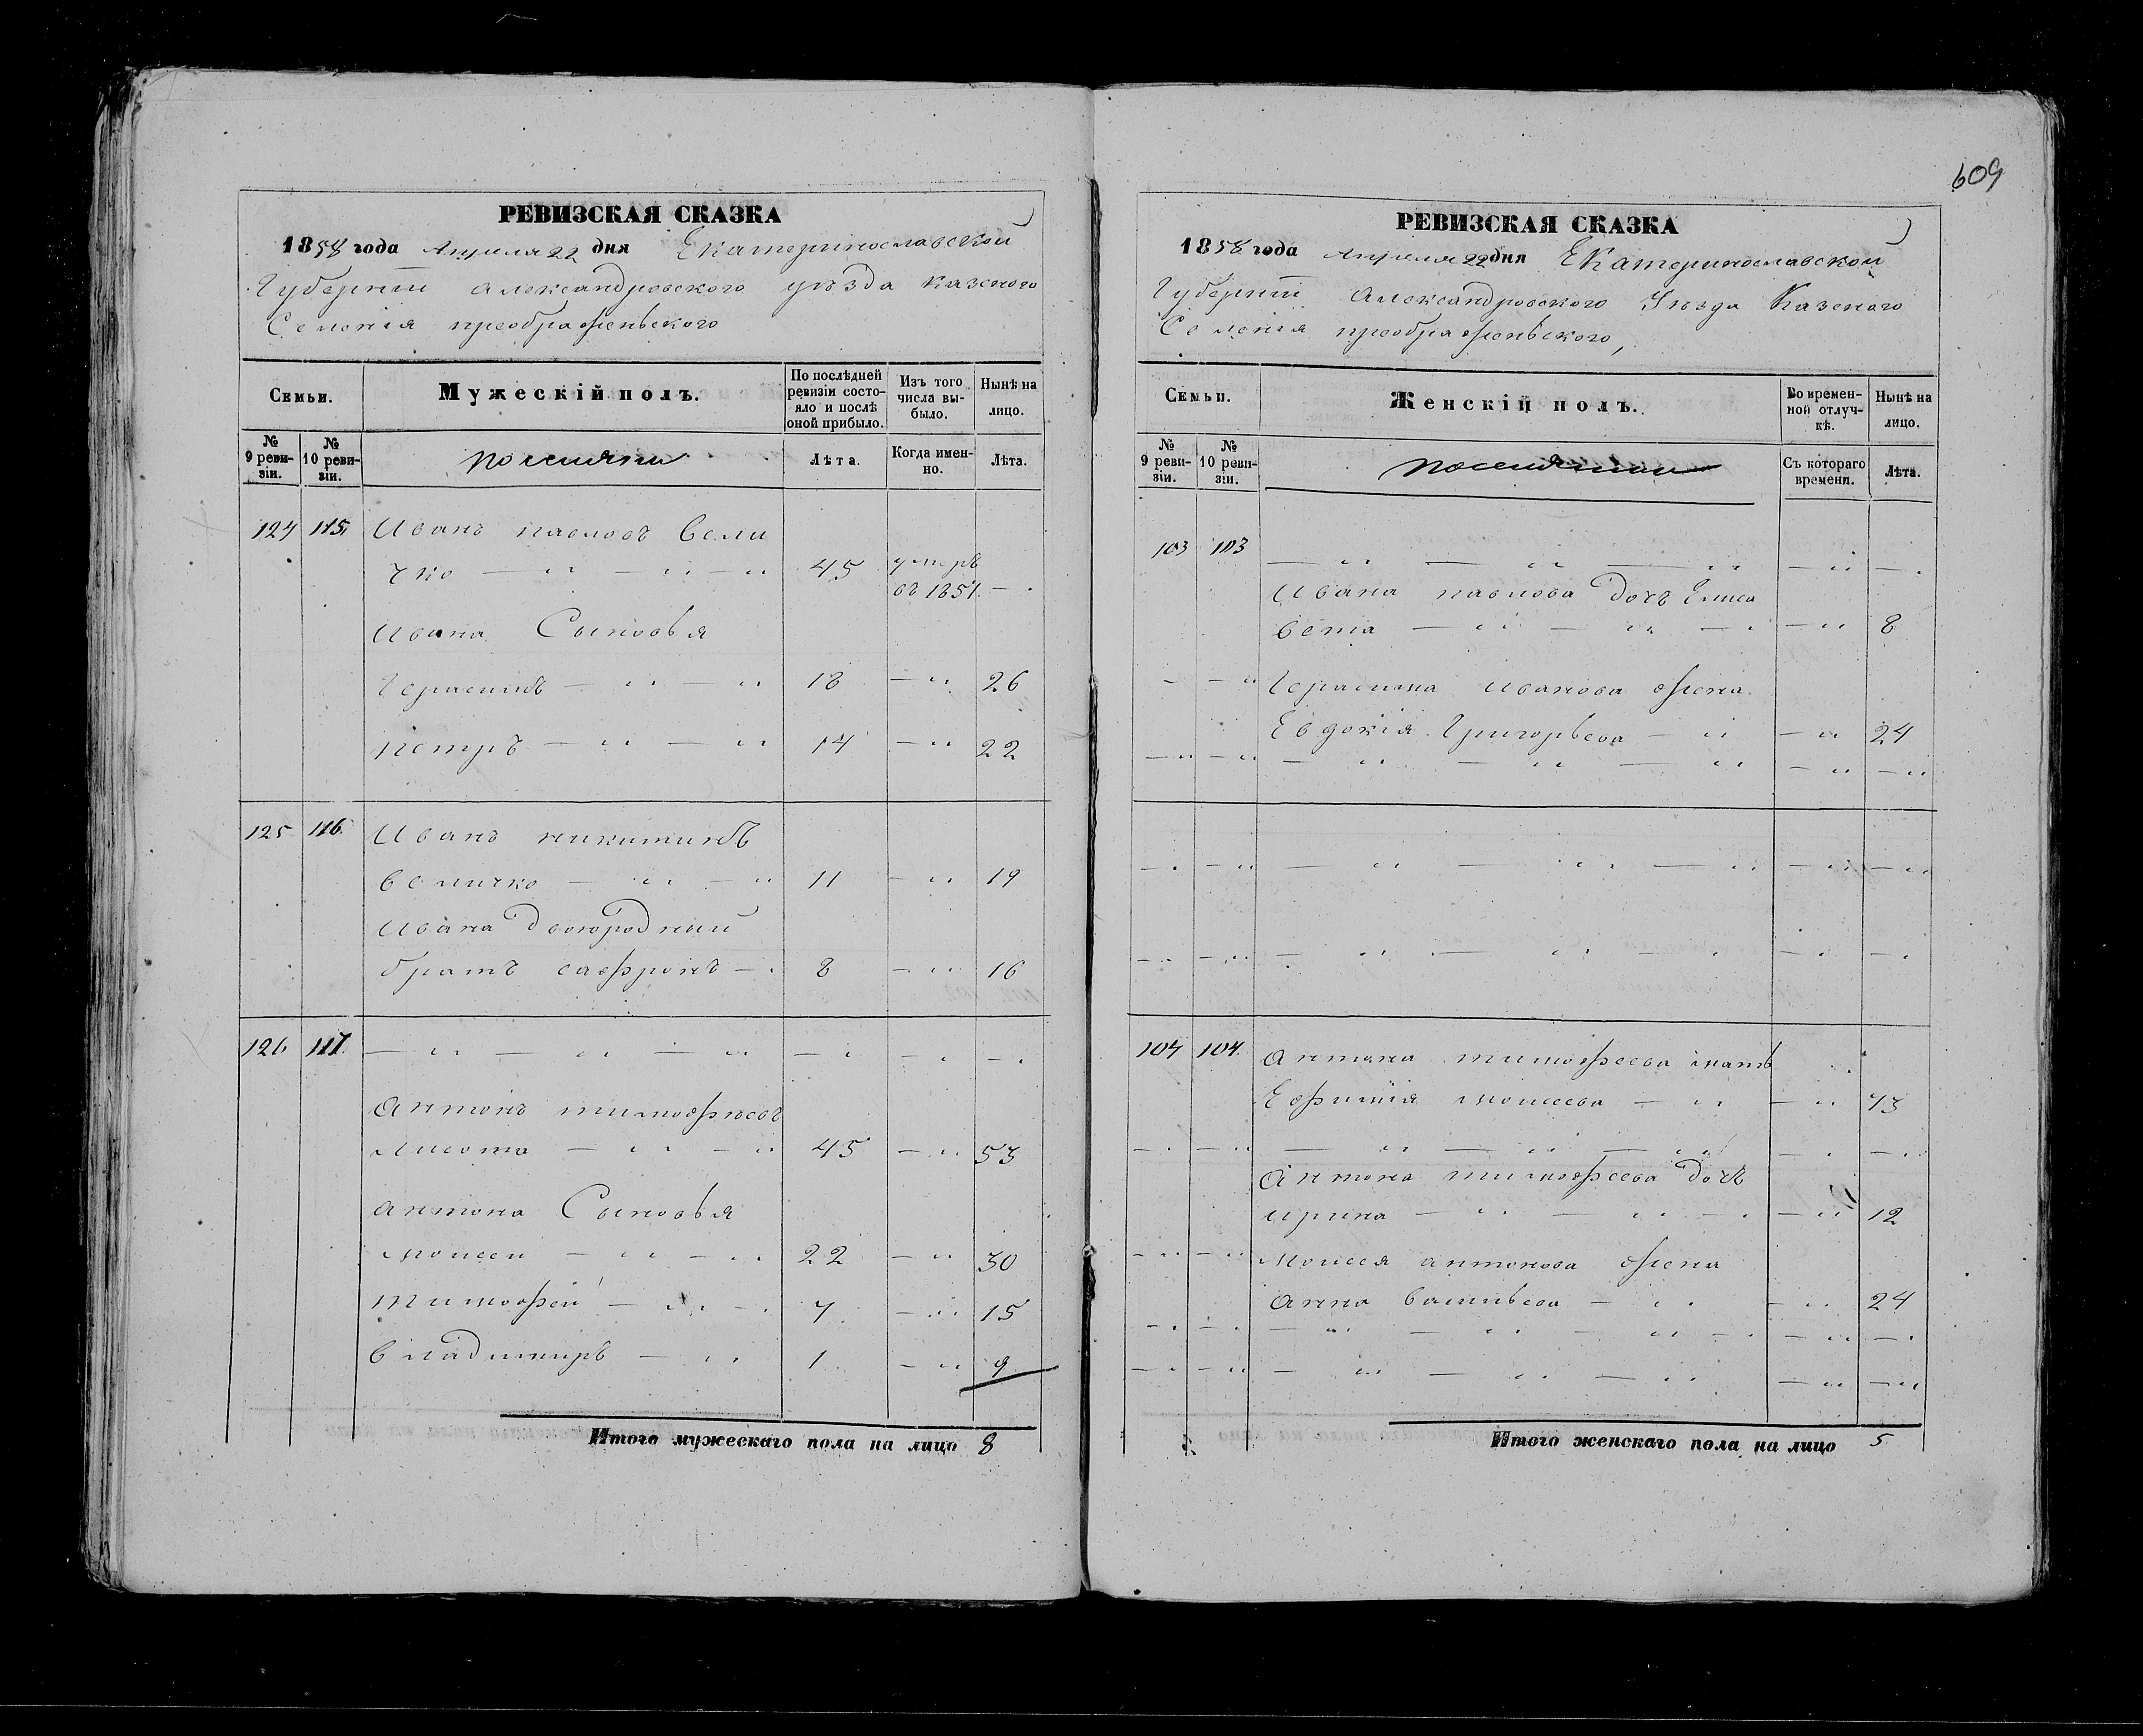 609
РЕВИЗСКАЯ СКАЗКА
1858 года Апреля 22 дня Екатеринославской
Губернiи Александровского уѣзда Казеного
Селенiя преображеньского
Семьи.
Мужескiй полъ.
По послѣдней ревизiи состо-
яло и послѣ оной прибыло.
Изъ того числа вы-
было.
Нынѣ на лицо.
№ 9 реви-
зiи.
№ 10 реви-
зiи.
поселяни
Лѣта.
Когда имен-
но.
Лѣта.
124 115 Иванъ павловъ Вели
чко — " — " — " 45 умеръ
въ 1851 —
Ивана Сыновья
Герасимъ — " — " 18 — " 26
петръ — " — " 14 — " 22
125 116 Иванъ никитинъ
величко — " — " 11 — " 19
Ивана Двоюродный
братъ сафронъ — 8 — " 16
126 117 — " — " — " — " — " — "
Антонъ тимофѣевъ
Лисота — " — " 45 — " 53
антона Сыновья
моисей — " — " 22 — " 30
тимофей — " — 7 — " 15
владимиръ — " 1 — " 9
Итого мужескаго пола на лицо 8
РЕВИЗСКАЯ СКАЗКА
1858 года Апреля 22 дня Екатеринославской
Губернiи Александровского Уѣзда Казеного
Селенiя преображеньского,
Семьи.
Женскiй полъ.
Во времен-
ной отлуч-
кѣ.
Нынѣ на лицо.
№ 9 реви-
зiи.
№ 10 реви-
зiи.
Съ котораго времени.
Лѣта.
103 103 — " — " — " — " —
Ивана павлова Дочь Елиса
вета — " — " — — " 8
— — " Герасима иванова жена
Евдокiя Григорьева — " — " 24
— " — " — " — " — " — " — "
— — " — " — " — " — " — "
— — " — " — " — — —
104 104 Антона тимофеева мать
Ефимiя моисеева — " — " 73
— — " — " — " — " — —
Антона тимофеева дочь
ирина — " — " — — " 12
— " — " моисея антонова жена
Анна васильева — " — " 24
— — — " — " — " — — " —
— " — " — " — " — " — " — "
Итого женскаго пола на лицо 5